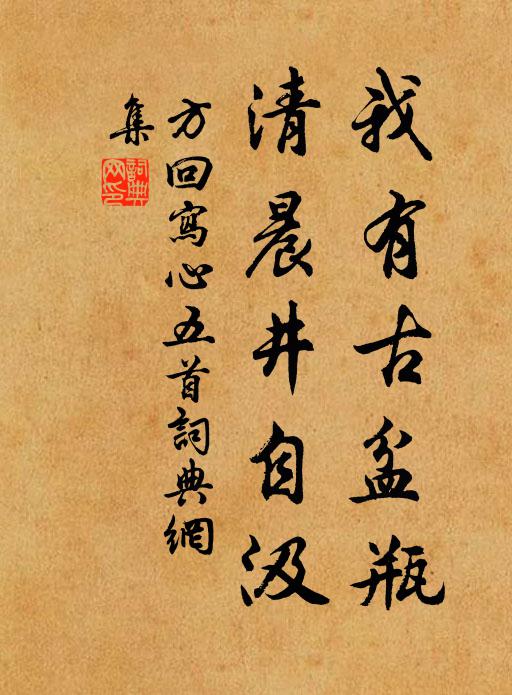 我有古盆瓶
清晨井自汲
方回寫心五首詞典網
集
詞典
网印